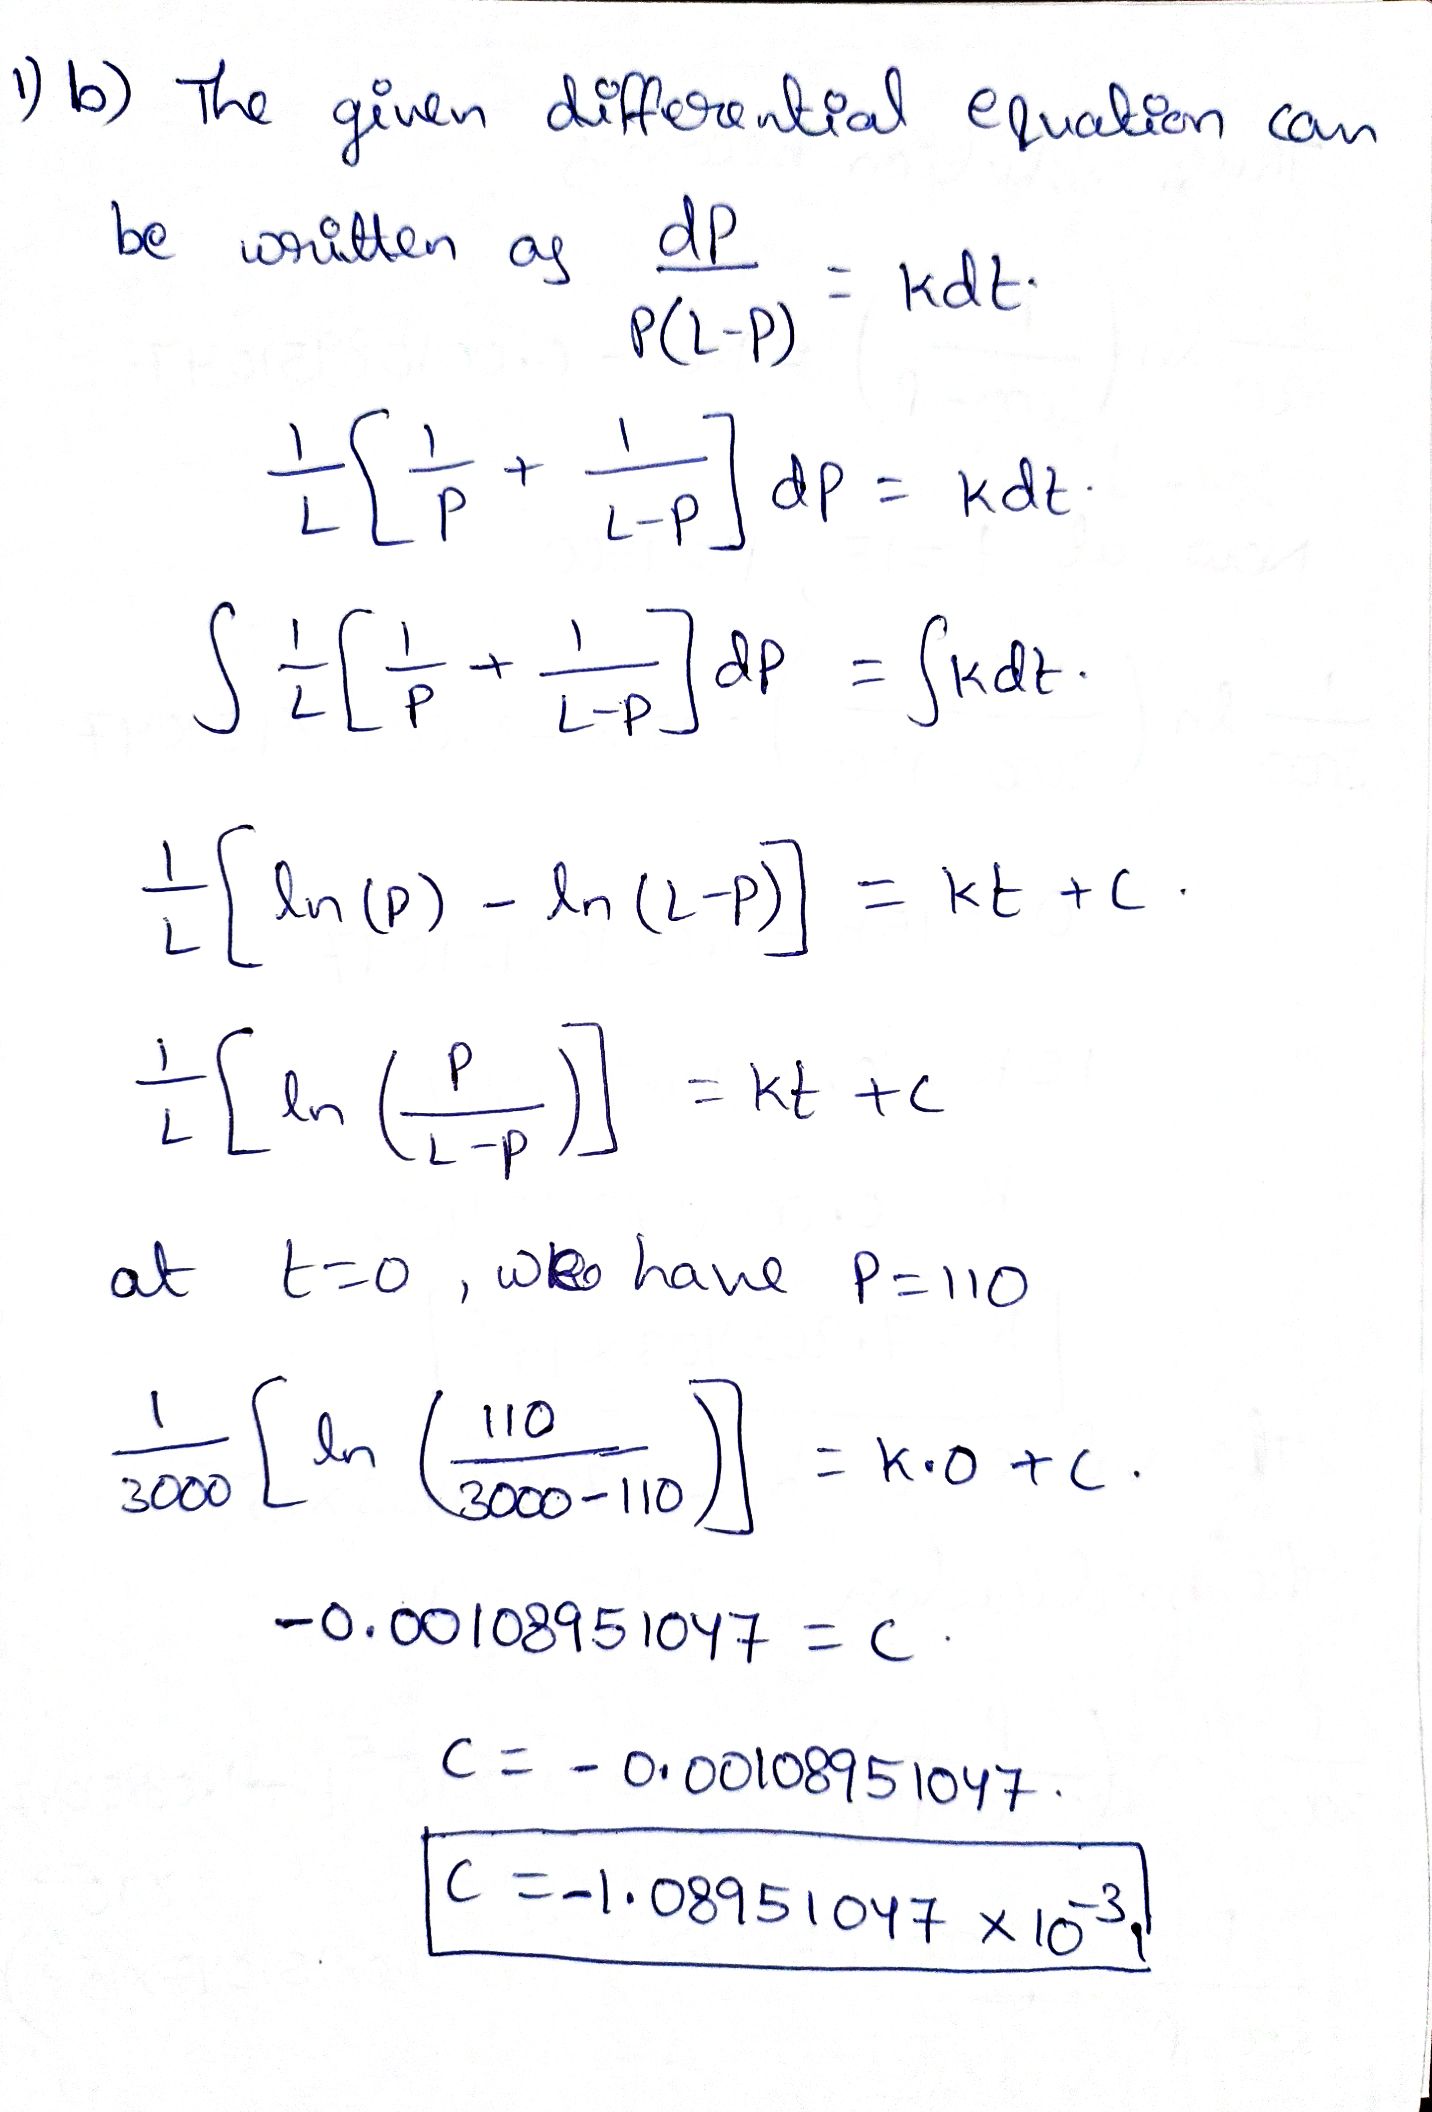 1) b) The given differential equation can
be written as dP/P(L-P) = kdt.
1/L [1/P + 1/L-P] dP = kdt.
∫ 1/L [1/P + 1/L-P] dP = ∫kdt.
1/L [ln(P) - ln(L-P)] = kt + C.
1/L [ln (P/L-P)] = kt + c
at t=0, we have P=110
1/3000 [ln (110/3000-110)] = k.0 + c.
-0.00108951047 = C.
C = -0.00108951047.
C = -1.08951047 × 10^-3,